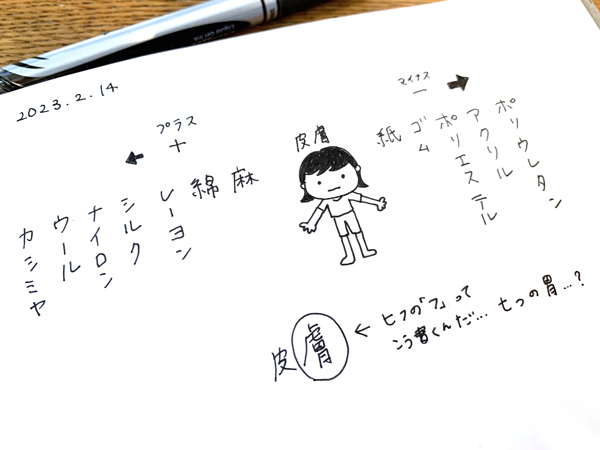 2023.2.14
プラス
+
←
カシミヤ
ウール
ナイロン
シルク
レーヨン
綿
麻
皮膚
マイナス
−
→
紙
ゴム
ポリエステル
アクリル
ポリウレタン
皮膚
← ヒフの「フ」って
こう書くんだ… 七つの胃…?